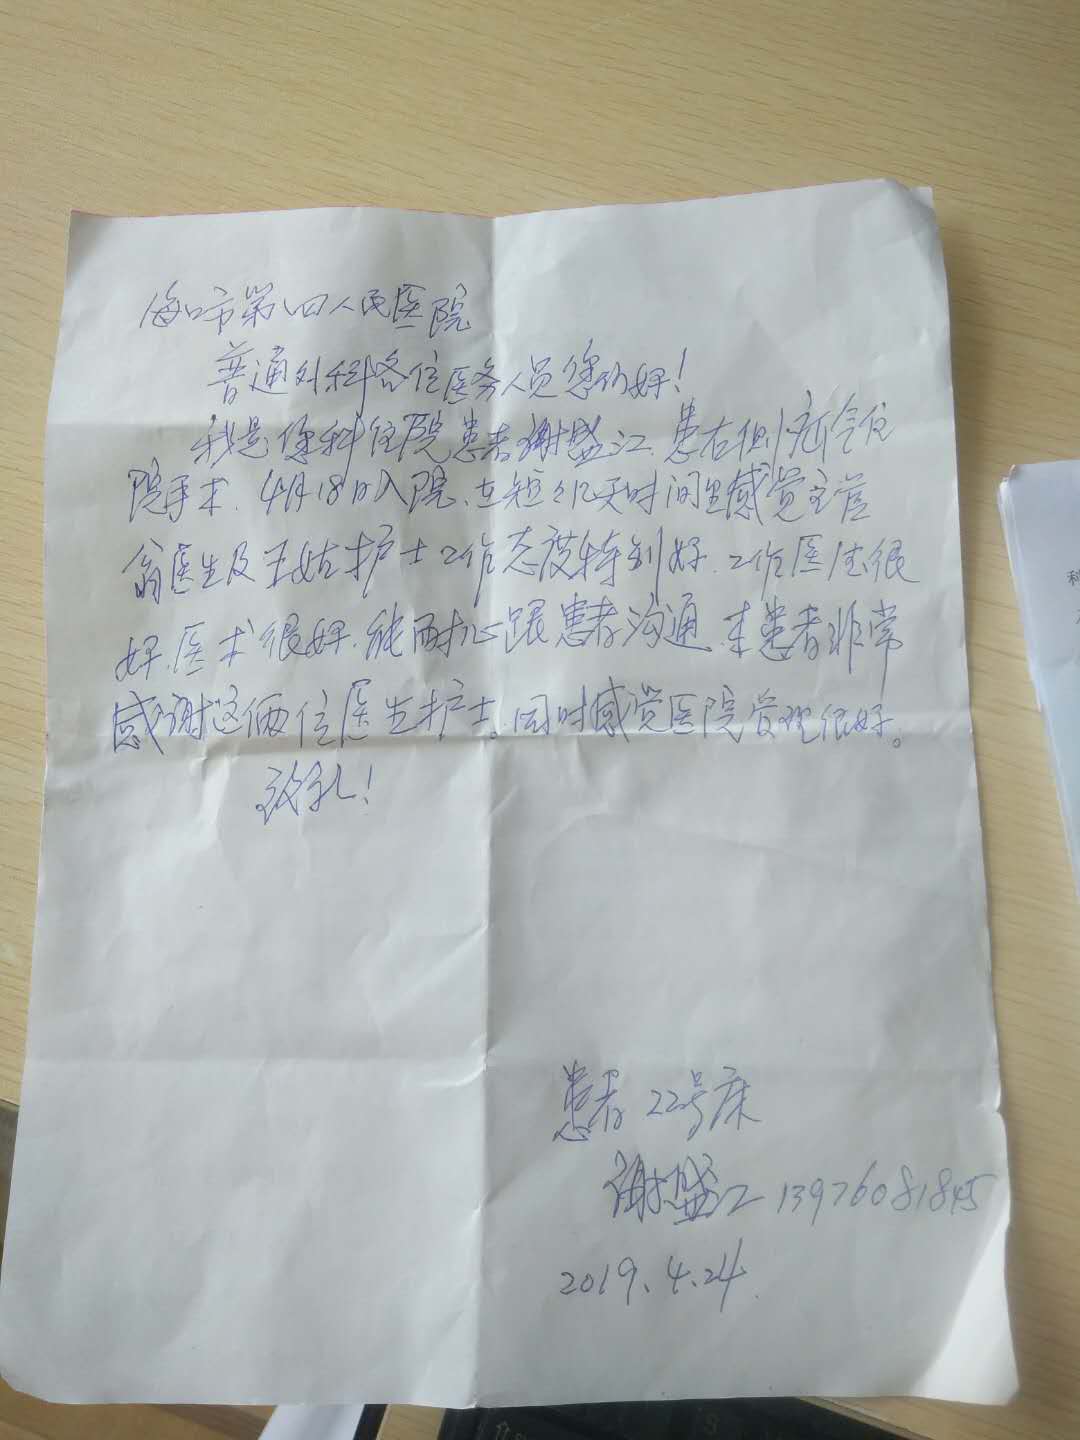 海口市第四人民医院
普通外科各位医务人员您们好！
我是您科住院患者谢盛江，患右侧疝气住
院手术，4月18日入院，在短短几天时间里感觉主管
翁医生及王姑护士工作态度特别好，工作医德很
好，医术很好，能耐心跟患者沟通，本患者非常
感谢这俩位医生护士。同时感觉医院管理很好。
致礼！
患者 22号床
谢盛江 13976081845
2019.4.24